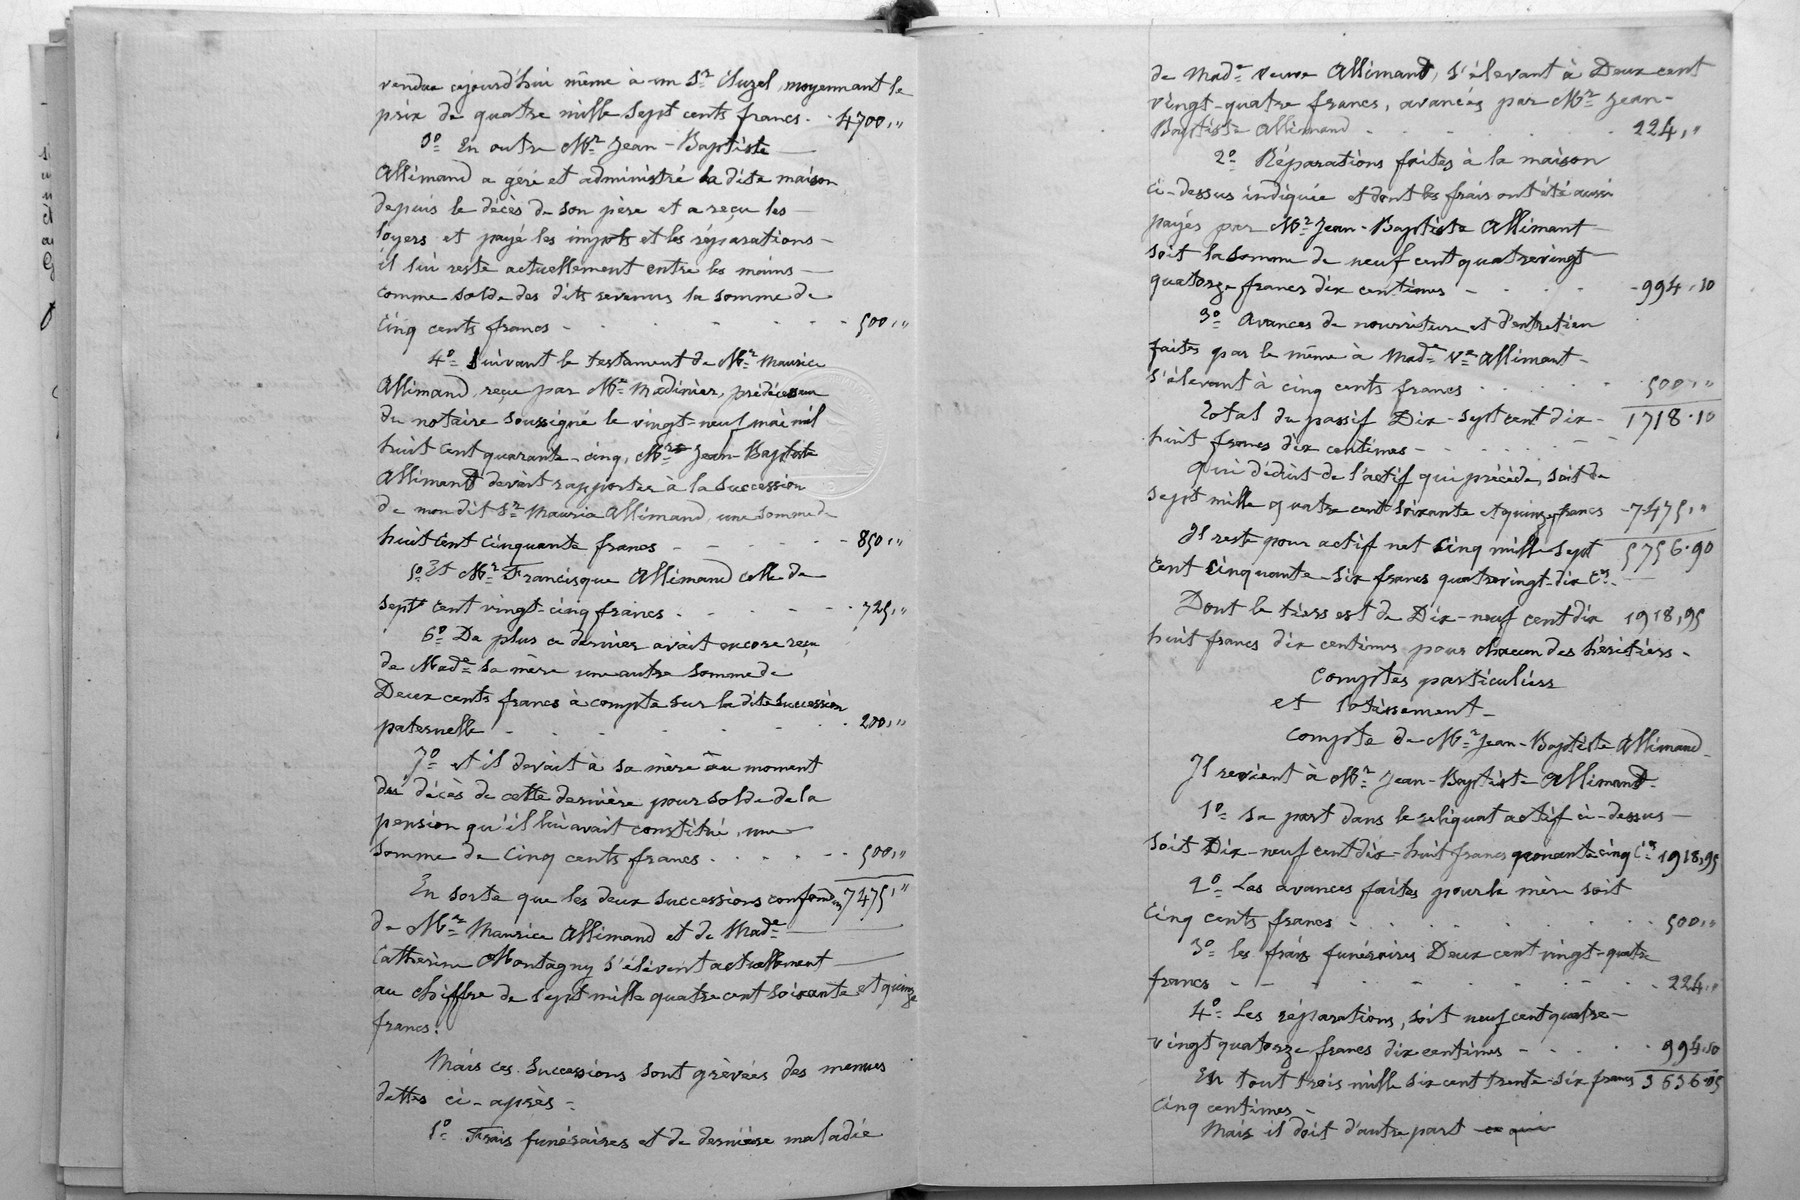 vendue cejourd'hui même à un Sr Cluzel, moyennant le
prix de quatre mille sept cents francs. . 4700,"
3o En outre Mr Jean-Baptiste
Allimand a géré et administré la dite maison
depuis le décès de son père et a reçu les
loyers et payé les impots et les réparations -
il lui reste actuellement entre les mains
comme solde des dits revenus la somme de
Cinq cents francs - . . . . . . 500,"
4o Suivant le testament de Mr Maurice
Allimand, reçu par Me Madinier, prédécesseur
du notaire soussigné le vingt-neuf mai mil
huit cent quarante-cinq, Mr Jean-Baptiste
Allimand devait rapporter à la succession
de mon dit Sr Maurice Allimand, une somme de
huit cent cinquante francs - - - - 850,"
5o Et Mr Francisque Allimand celle de
sept cent vingt-cinq francs . . . . . 725,"
6o De plus ce dernier avait encore reçu
de Made sa mère une autre somme de
Deux cents francs à compte sur la dite succession
paternelle - . . . . . . 200,"
7o et il devait à sa mère au moment
du décès de cette dernière pour solde de la
pension qu'il lui avait constitué, une
somme de Cinq cents francs . . . . . 500,"
En sorte que les deux successions confondues 7475,"
de Mr Maurice Allimand et de Made
Catherine Montagny s'élèvent actuellement
au chiffre de sept mille quatre cent soixante et quinze
francs.
Mais ces successions sont grèvées des menues
dettes ci-après -
1o Frais funéraires et de dernière maladie
de Made veuve Allimand, s'élevant à Deux cent
vingt-quatre francs, avancés par Mr Jean-
Baptiste Allimand . . . . . . 224,"
2o Réparations faites à la maison
ci-dessus indiquée et dont les frais ont été aussi
payés par Mr Jean-Baptiste Allimant
soit la somme de neuf cent quatrevingt
quatorze francs dix centimes - . . . - 994,10
3o Avances de nourriture et d'entretien
faites par le même à Made Ve Allimant -
s'élevant à cinq cents francs . . . . . 500,"
Total du passif Dix-sept cent dix- 1718.10
huit francs dix centimes -
Qui déduit de l'actif qui précède, soit de
sept mille quatre cent soixante et quinze francs - 7475,"
Il reste pour actif net Cinq mille sept 5756.90
cent cinquante-six francs quatrevingt-dix Cs. -
Dont le tiers est de Dix-neuf cent dix 1918,95
huit francs dix centimes pour chacun des héritiers -
Comptes particuliers
et lotissement -
Compte de Mr Jean-Baptiste Allimand
Il revient à Mr Jean-Baptiste Allimand -
1o sa part dans le reliquat actif ci-dessus -
soit Dix-neuf cent dix-huit francs nonante cinq Cs 1918,95
2o Les avances faites pour la mère soit
Cinq cents francs . . . . . . 500,"
3o les frais funéraires Deux cent vingt-quatre
francs - - . . . . . . 224,"
4o Les réparations, soit neuf cent quatre-
vingt quatorze francs dix centimes - . . . . 994.10
En tout trois mille six cent trente-six francs 3636.05
Cinq centimes -
Mais il doit d'autre part ce qui